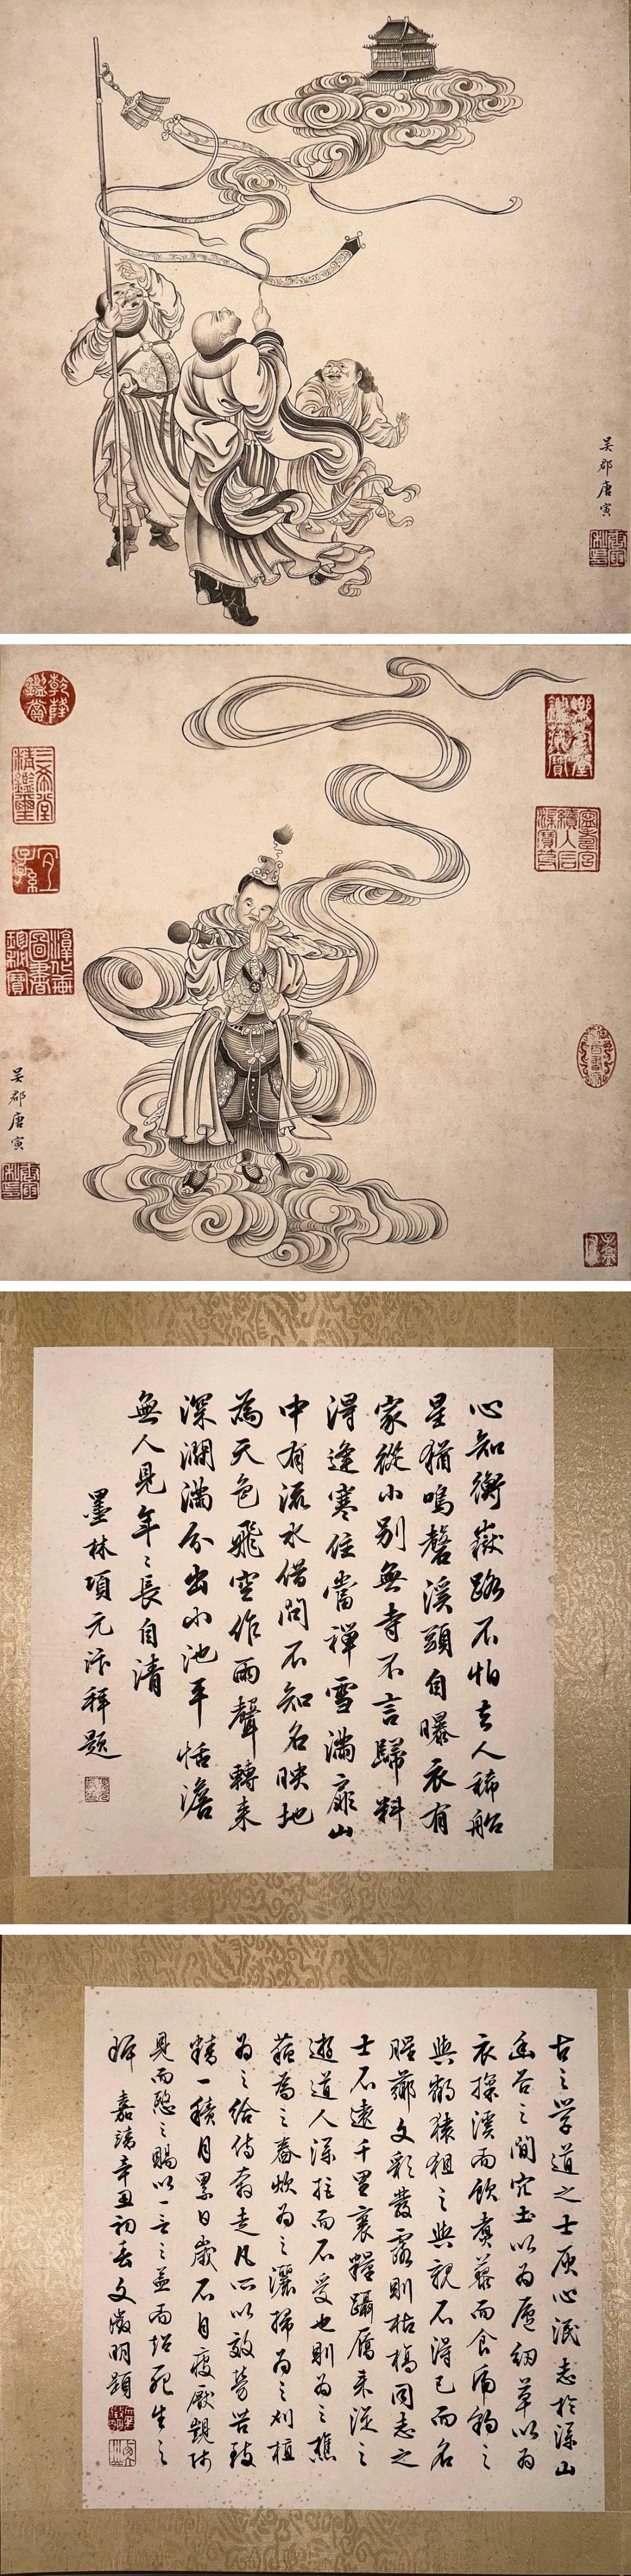 吳郡唐寅
唐寅私印
乾隆鑑賞
三希堂精鑑璽
宜子孫
淳化軒圖書珍秘寶
吳郡唐寅
唐寅私印
心知衡嶽路不怕去人稀船
里猶鳴磬溪頭自曝衣有
家從小別無寺不言歸料
得逢寒住當禪雪滿扉山
中有流水借問不知名映地
為天色飛空作雨聲轉來
深澗滿分出小池平恬澹
無人見年〻長自清
墨林項元汴拜題
古之學道之士灰心泯志於深山
幽谷之間穴土以為廬紉草以為
衣掬溪而飲煮藜而食虎豹之
與鄰猿狙之與親不得已而名
腥薌文彩發露則枯槁同志之
士不遠千里裹糧躡屩來從之
遊道人深拒而不受也則為之樵
蘇為之舂炊為之灑掃為之刈植
為之給侍奔走凡所以效勞苦致
精一積月累日歲不自疲厭覬師
見而愍之賜以一言之益而超死生之
際 嘉靖辛丑初春文徵明題